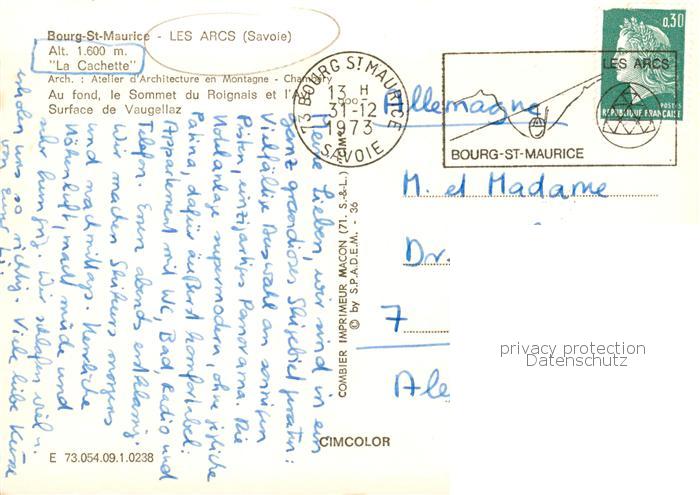 Bourg-St-Maurice - LES ARCS (Savoie)
Alt. 1.600 m.
"La Cachette"
Arch. : Atelier d'Architecture en Montagne - Chambéry
Au fond, le Sommet du Roignais et l'A
Surface de Vaugellaz
Meine Lieben, wir sind in ein
ganz grandioses Skigebiet geraten:
Vielfältige Auswahl an sonnigen
Pisten, einzigartiges Panorama. Die
Hotelanlage supermodern, ohne jegliche
Patina, dafür äußerst komfortabel:
Appartement mit WC, Bad Radio und
Telefon. Essen abends erstklassig.
Wir machen Skikurs morgens
und nachmittags. Herrliche
Höhenluft, macht müde und
sehr hungrig. Wir schlafen viel u.
erholen uns so richtig. Viele liebe Küsse
von Eurer
COMBIER IMPRIMEUR MACON (71. S.-&-L.)
© by S.P.A.D.E.M. - 36
CIMCOLOR
E 73.054.09.1.0238
73 BOURG ST MAURICE
13 H
31-12
1973
SAVOIE
LES ARCS
BOURG-ST-MAURICE
0,30
POSTES
REPUBLIQUE FRANÇAISE
Allemagne
M. et Madame
Dr.
7
Ale
privacy protection
Datenschutz